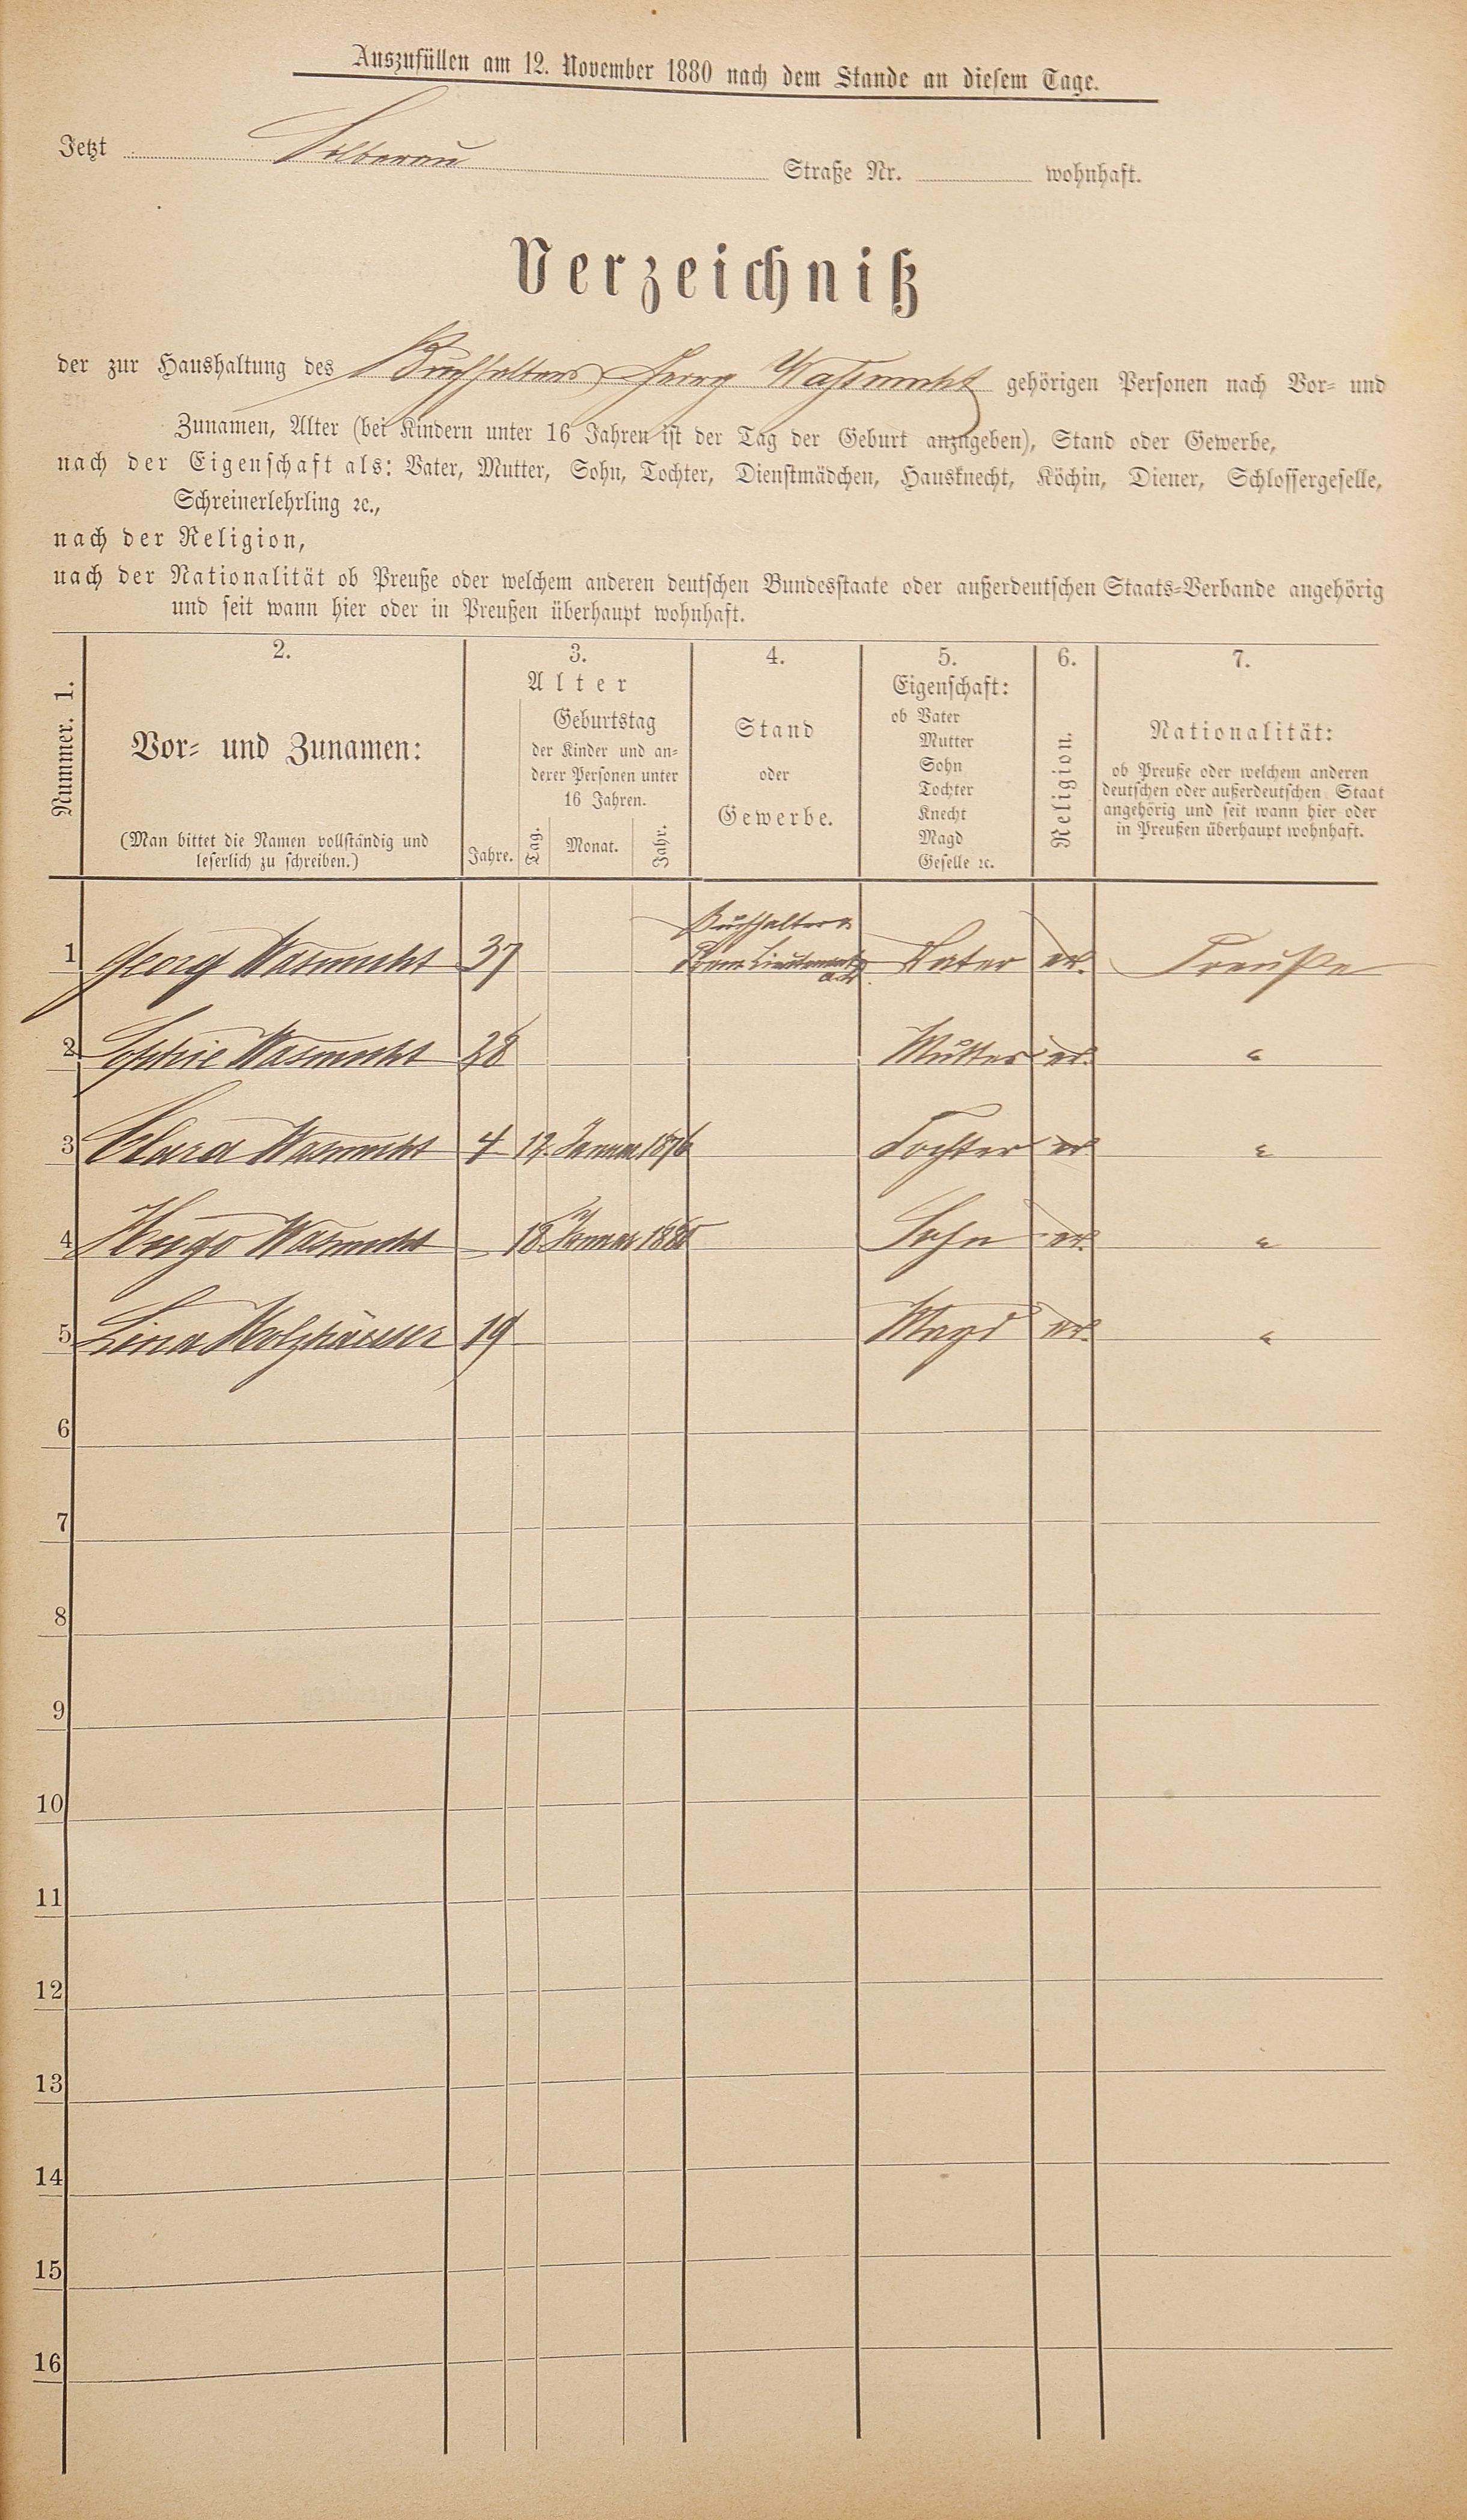 Auszufüllen am 12. November 1880 nach dem Stande an diesem Tage.
Jetzt Silberau Straße Nr. wohnhaft.
Verzeichniß
der zur Haushaltung des Buchhalters Georg Wasmuht gehörigen Personen nach Vor- und
Zunamen, Alter (bei Kindern unter 16 Jahren ist der Tag der Geburt anzugeben), Stand oder Gewerbe,
nach der Eigenschaft als: Vater, Mutter, Sohn, Tochter, Dienstmädchen, Hausknecht, Köchin, Diener, Schlossergeselle,
Schreinerlehrling ꝛc.,
nach der Religion,
nach der Nationalität ob Preuße oder welchem anderen deutschen Bundesstaate oder außerdeutschen Staats-Verbande angehörig
und seit wann hier oder in Preußen überhaupt wohnhaft.
Nummer. 1.
2.
Vor- und Zunamen:
(Man bittet die Namen vollständig und
leserlich zu schreiben.)
3.
Alter
Jahre.
Geburtstag
der Kinder und an-
derer Personen unter
16 Jahren.
Tag. Monat. Jahr.
4.
Stand
oder
Gewerbe.
5.
Eigenschaft:
ob Vater
Mutter
Sohn
Tochter
Knecht
Magd
Geselle ꝛc.
6.
Religion.
7.
Nationalität:
ob Preuße oder welchem anderen
deutschen oder außerdeutschen Staat
angehörig und seit wann hier oder
in Preußen überhaupt wohnhaft.
Buchhalter
1 Georg Wasmuht 37 Lieutenant Vater ev. Preuße
a.D.
2 Sophie Wasmuht 28 Mutter ev. "
3 Clara Wasmuht 4 12. Januar 1876 Tochter ev "
4 Hugo Wasmuht 18 Januar 1880 Sohn ev. "
5 Lina Holzhäuser 19 Magd ev. "
6
7
8
9
10
11
12
13
14
15
16